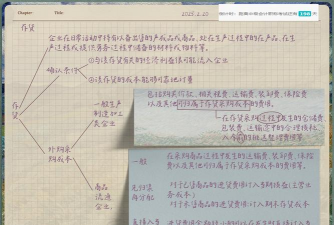 Chapter
Title
2025.2.20
存货
企业在日常活动中持有以备出售的产成品或商品,处在生产过程中的在产品,在生
产过程或提供劳务过程中储备的材料或物料等。
①与该存货有关的经济利益很可能流入企业
确认条件
②该存货的成本能够可靠地计量
存货
一般生产
制造加工
类企业
包括购买价款、相关税费、运输费、装卸费、保险费
以及其他可归属于存货采购成本的费用。
在存货采购过程中发生的仓储费、
包装费、运输途中的合理损耗、
入库前的挑选整理费等
外购采
购成本
商品
流通
企业
一般
在采购商品过程中发生的运输费、装卸费、保险费
以及其他可归属于存货采购成本的费用
先归集
再分配
对于已售商品的进货费用计入当期损益(主营业
务成本)
对于未售商品的进货费用计入期末存货成本